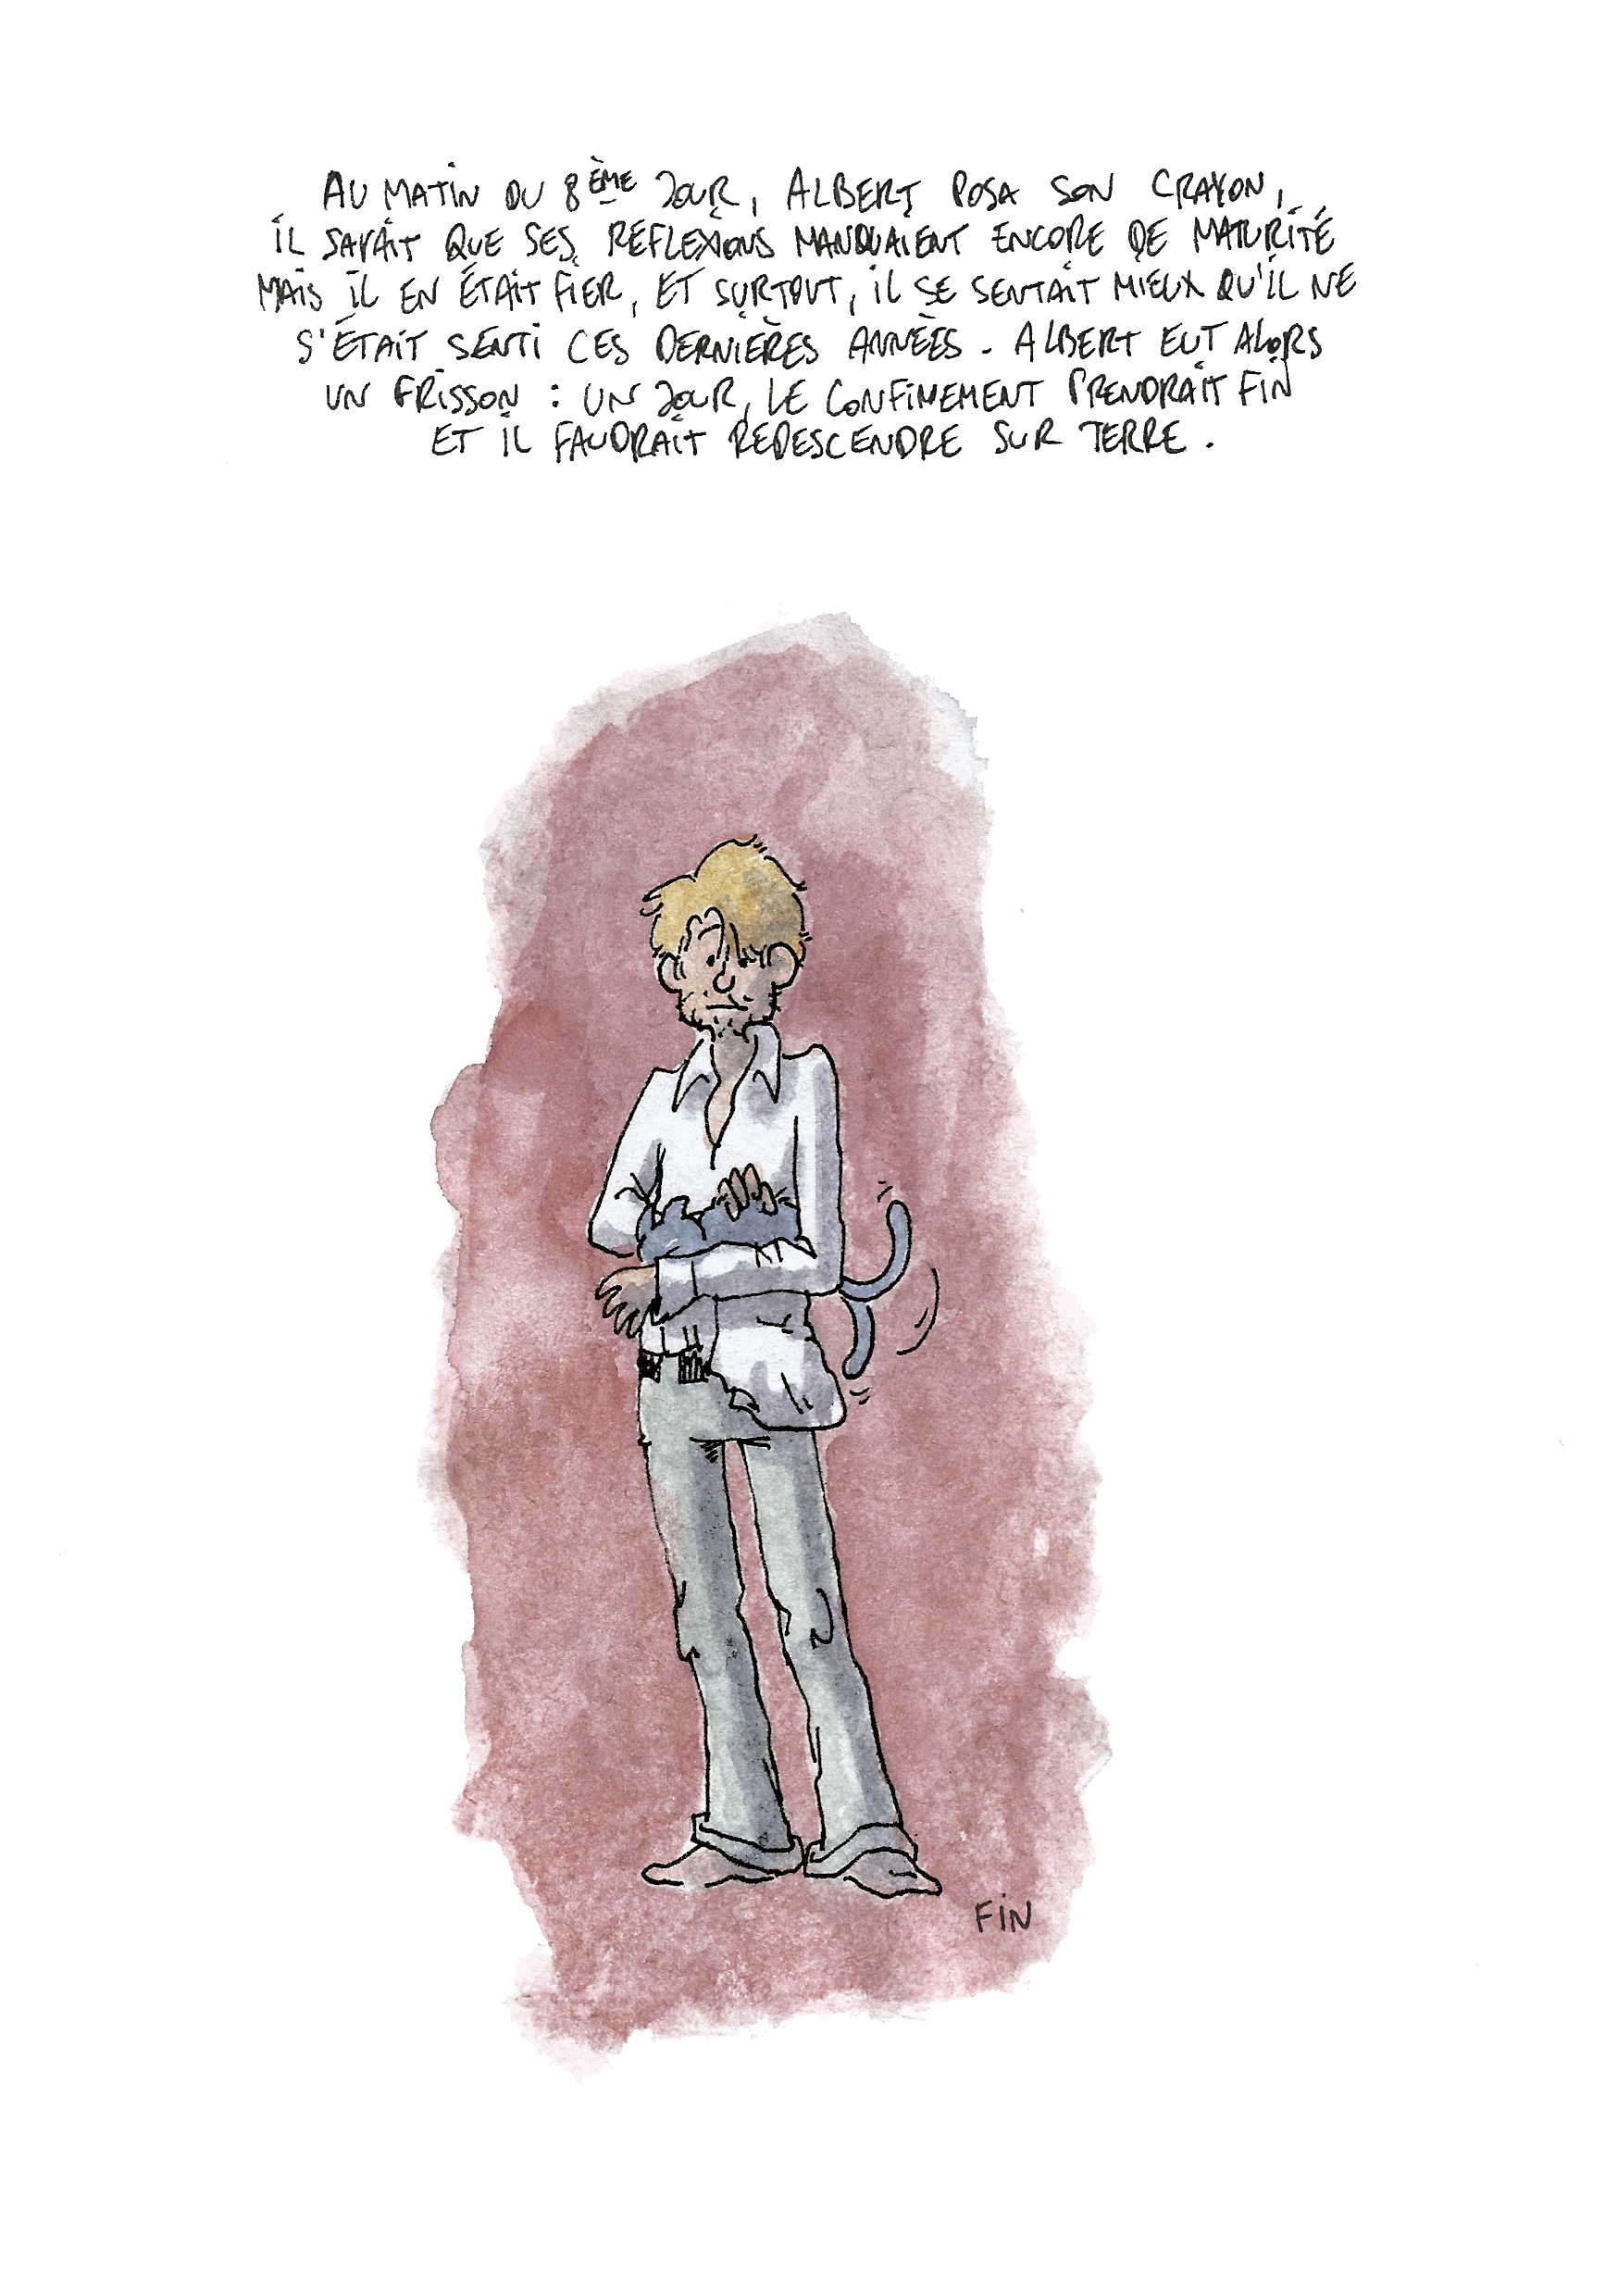 AU MATIN DU 8ÈME JOUR, ALBERT POSA SON CRAYON,
IL SAVAIT QUE SES RÉFLEXIONS MANQUAIENT ENCORE DE MATURITÉ
MAIS IL EN ÉTAIT FIER, ET SURTOUT, IL SE SENTAIT MIEUX QU'IL NE
S'ÉTAIT SENTI CES DERNIÈRES ANNÉES. ALBERT EUT ALORS
UN FRISSON : UN JOUR, LE CONFINEMENT PRENDRAIT FIN
ET IL FAUDRAIT REDESCENDRE SUR TERRE.
FIN